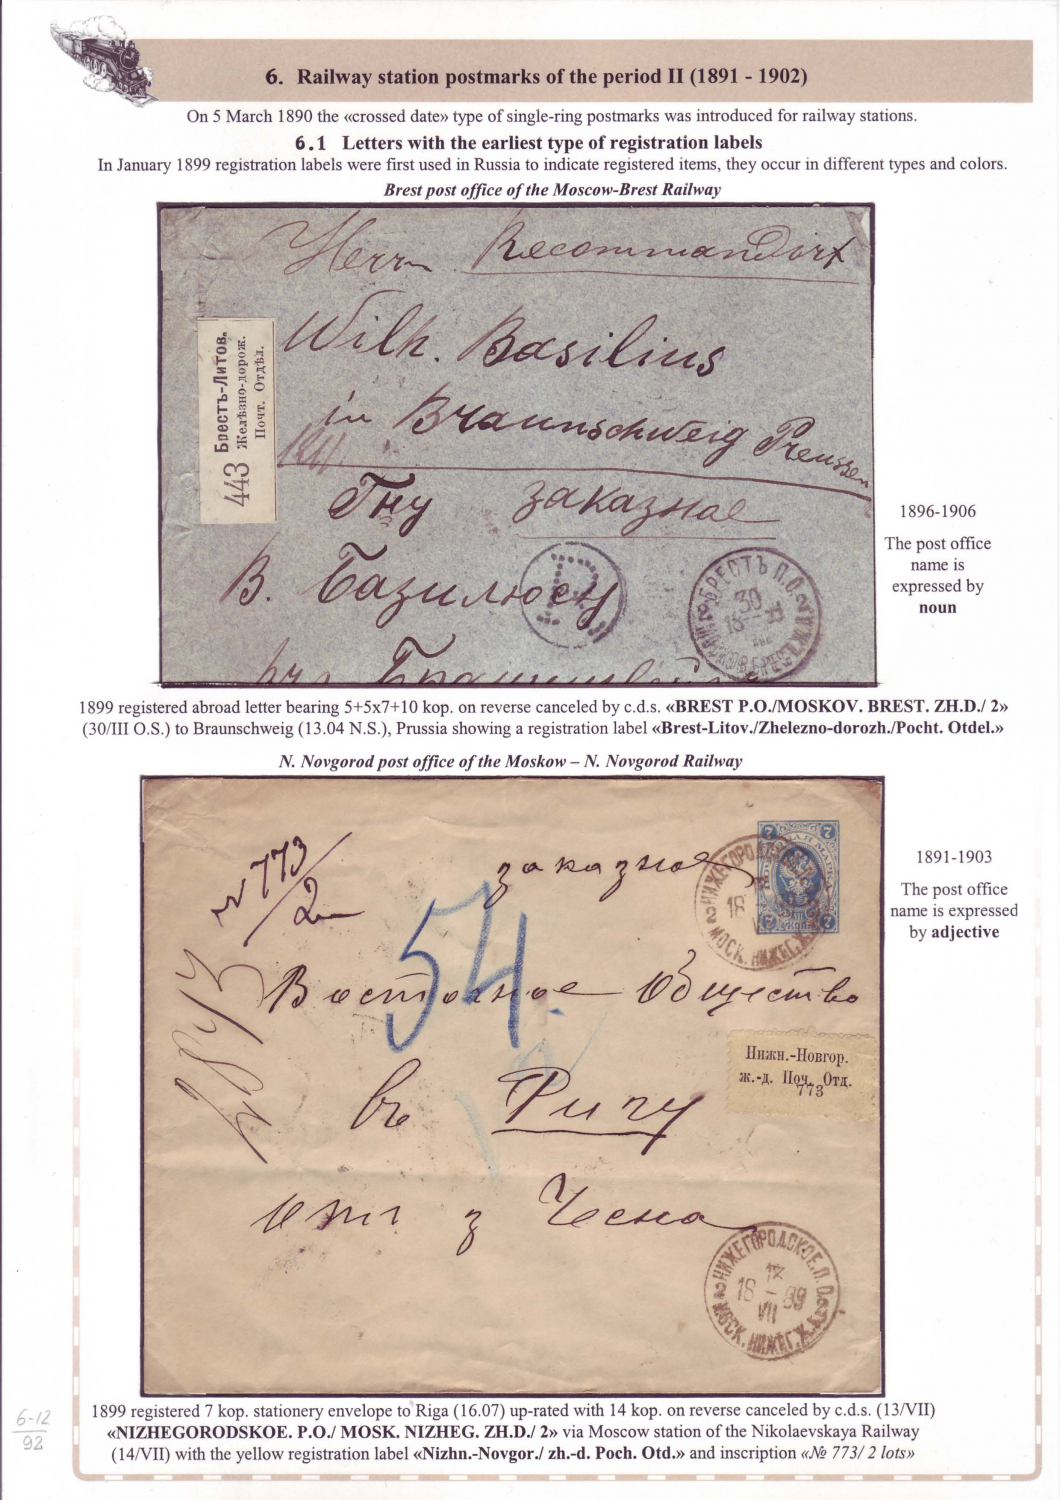 6. Railway station postmarks of the period II (1891 - 1902)
On 5 March 1890 the «crossed date» type of single-ring postmarks was introduced for railway stations.
6.1 Letters with the earliest type of registration labels
In January 1899 registration labels were first used in Russia to indicate registered items, they occur in different types and colors.
Brest post office of the Moscow-Brest Railway
Herrn Recommandirt
Wilh. Basilius
in Braunschweig Preussen
Гну заказное
В. Базилюсу
443 Брестъ-Литов.
Желѣзно-дорож.
Почт. Отдѣл.
R
БРЕСТЪ П.О.
30
2
1896-1906
The post office
name is
expressed by
noun
1899 registered abroad letter bearing 5+5x7+10 kop. on reverse canceled by c.d.s. «BREST P.O./MOSKOV. BREST. ZH.D./ 2»
(30/III O.S.) to Braunschweig (13.04 N.S.), Prussia showing a registration label «Brest-Litov./Zhelezno-dorozh./Pocht. Otdel.»
N. Novgorod post office of the Moskow – N. Novgorod Railway
№ 773/2
заказное
7
54.
Восточное Общество
въ Ригу
Нижн.-Новгор.
ж.-д. Поч. Отд.
773
НИЖЕГОРОДСКОЕ. П. О.
18 99
VII
МОСК. НИЖЕГ. Ж.Д.
1891-1903
The post office
name is expressed
by adjective
1899 registered 7 kop. stationery envelope to Riga (16.07) up-rated with 14 kop. on reverse canceled by c.d.s. (13/VII)
«NIZHEGORODSKOE. P.O./ MOSK. NIZHEG. ZH.D./ 2» via Moscow station of the Nikolaevskaya Railway
(14/VII) with the yellow registration label «Nizhn.-Novgor./ zh.-d. Poch. Otd.» and inscription «№ 773/ 2 lots»
6-12
92